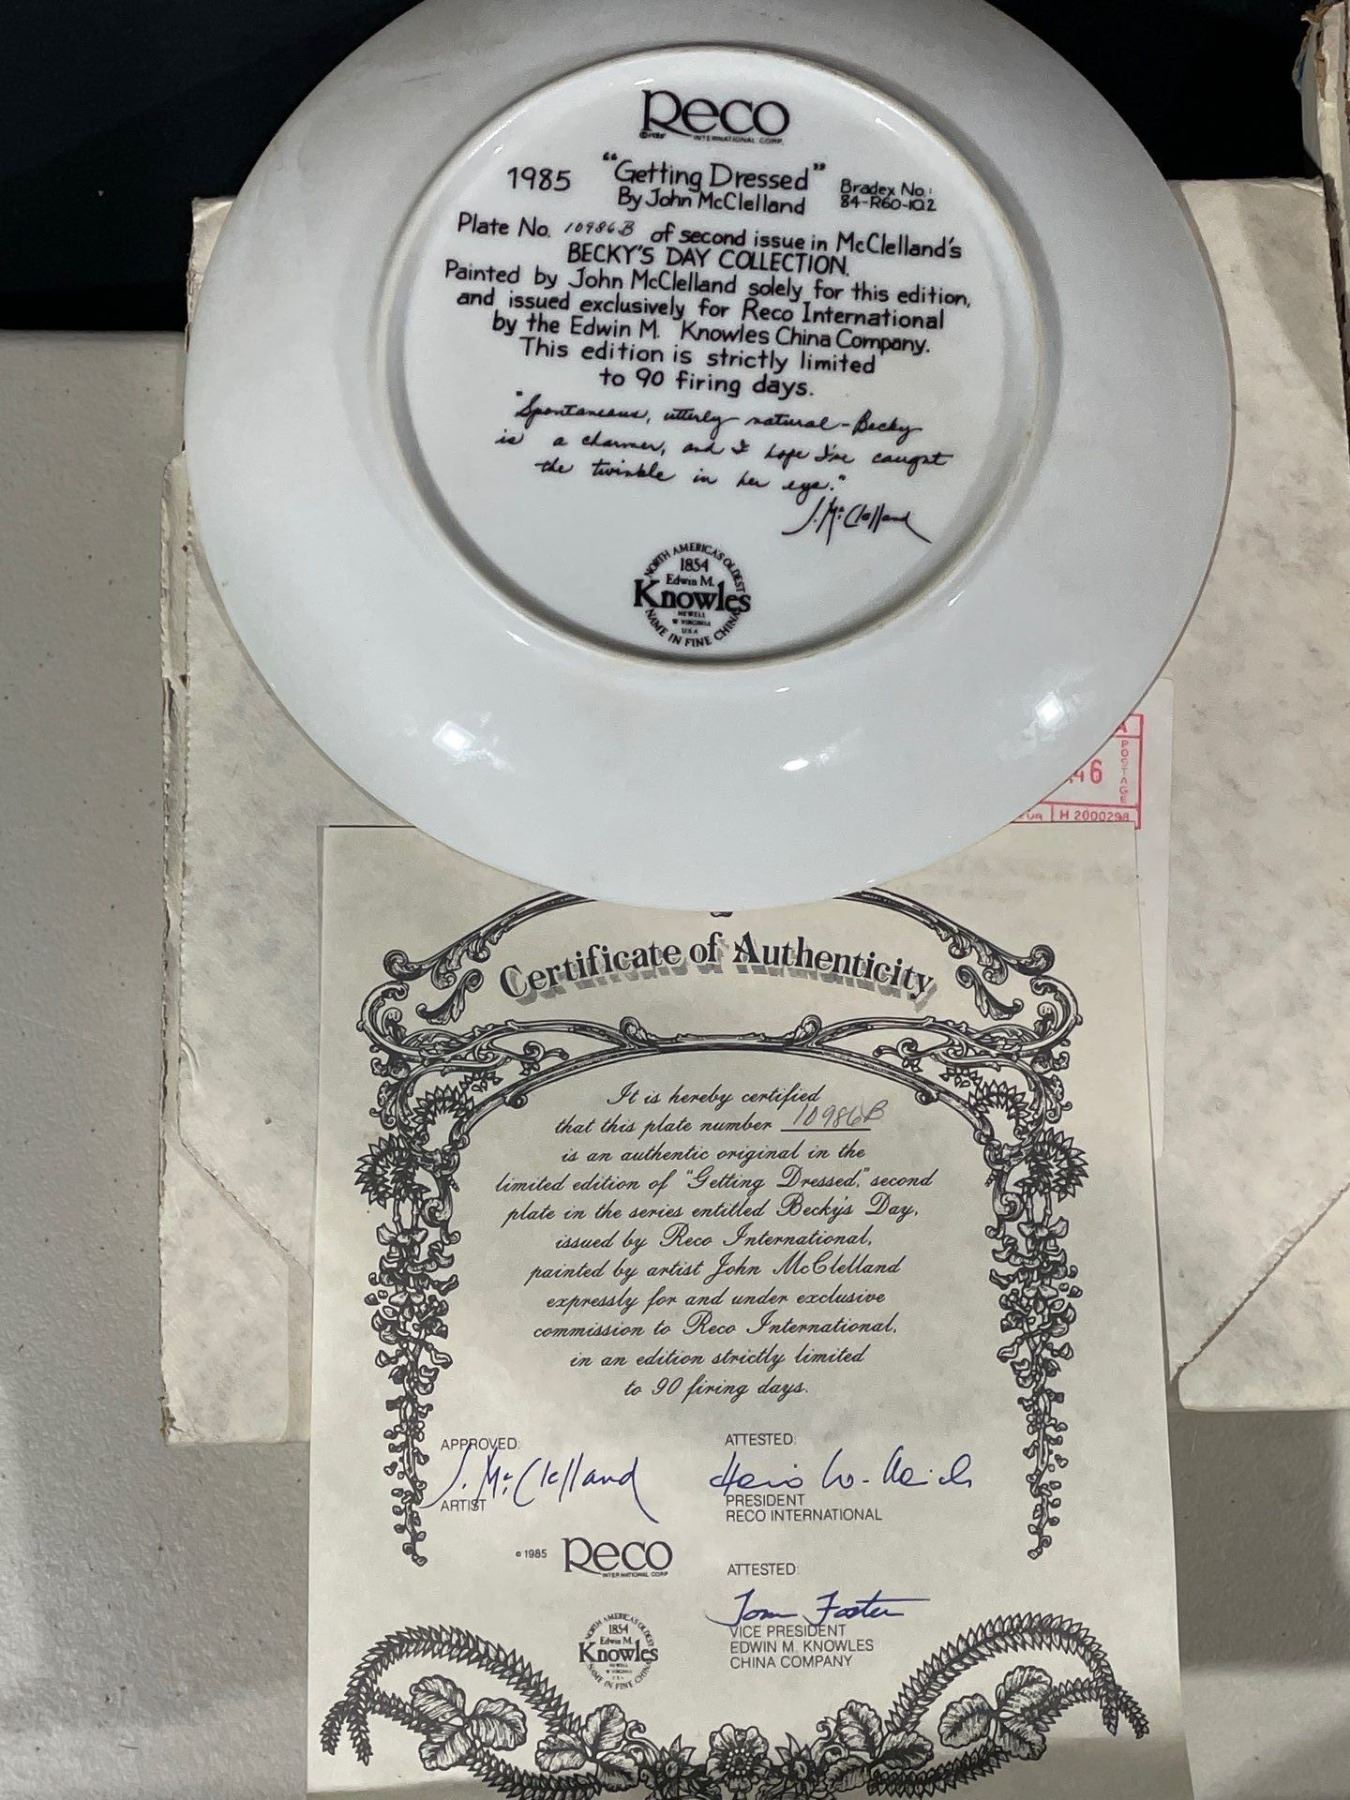 Reco
INTERNATIONAL CORP.
1985 "Getting Dressed" Bradex No:
By John McClelland 84-R60-10.2
Plate No. 10986B of second issue in McClelland's
BECKY'S DAY COLLECTION.
Painted by John McClelland solely for this edition,
and issued exclusively for Reco International
by the Edwin M. Knowles China Company.
This edition is strictly limited
to 90 firing days.
"Spontaneous, utterly natural - Becky
is a charmer, and I hope I've caught
the twinkle in her eye."
J. McClelland
NORTH AMERICA'S OLDEST
1854
Edwin M.
Knowles
NEWELL
W VIRGINIA
USA
NAME IN FINE CHINA
POSTAGE
.46
H 2000298
Certificate of Authenticity
It is hereby certified
that this plate number 10986B
is an authentic original in the
limited edition of "Getting Dressed," second
plate in the series entitled Becky's Day,
issued by Reco International,
painted by artist John McClelland
expressly for and under exclusive
commission to Reco International,
in an edition strictly limited
to 90 firing days.
APPROVED: ATTESTED:
J. McClelland
ARTIST PRESIDENT
RECO INTERNATIONAL
© 1985 Reco
INTERNATIONAL CORP
ATTESTED:
Tom Foster
VICE PRESIDENT
EDWIN M. KNOWLES
CHINA COMPANY
NORTH AMERICA'S OLDEST
1854
Edwin M.
Knowles
NEWELL
W VIRGINIA
NAME IN FINE CHINA